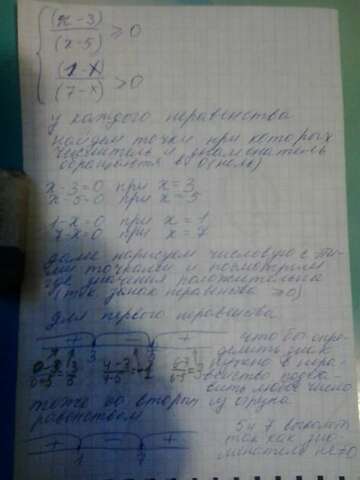 (x-3)
(x-5) ≥0
(1-x)
(7-x) >0
у каждого неравенства
найдем точки при которых
числитель и знаменатель
обращаются в 0 (ноль)
x-3=0 при x=3
x-5=0 при x=5
1-x=0 при x=1
7-x=0 при x=7
далее нарисуем числовую с
точками и посмотрим
где значения положительна
так знак неравенства ≥0)
для первого неравенства
+ - +
3
что бы опре-
делить знак
нужно в нера-
венство подста-
вить любое число
тоже со вторым
равенством
5 и 7
так как зна-
менатель не=0
+ - +
1 7